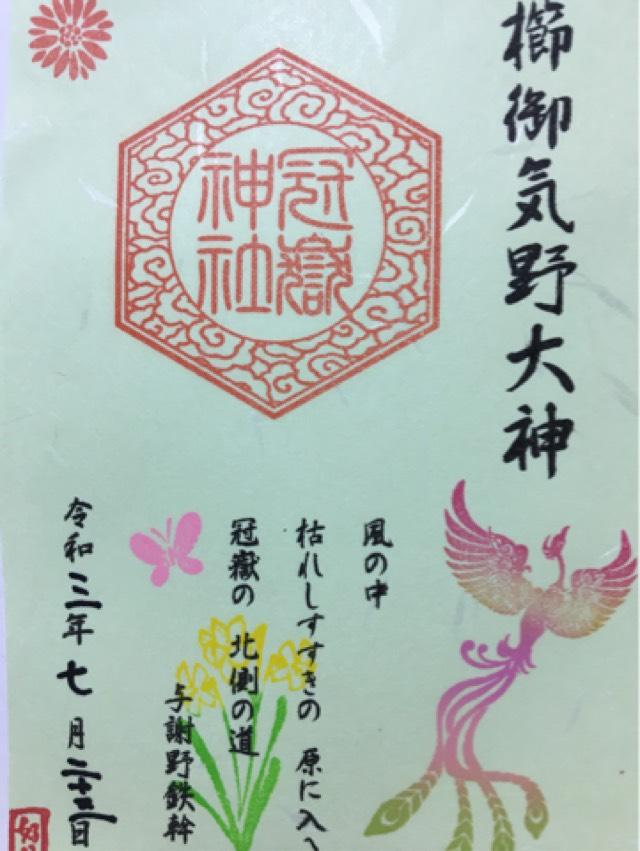 櫛御気野大神
冠嶽
神社
風の中
枯れしすすきの 原に入
冠嶽の 北側の道
与謝野鉄幹
令和三年七月二十二日